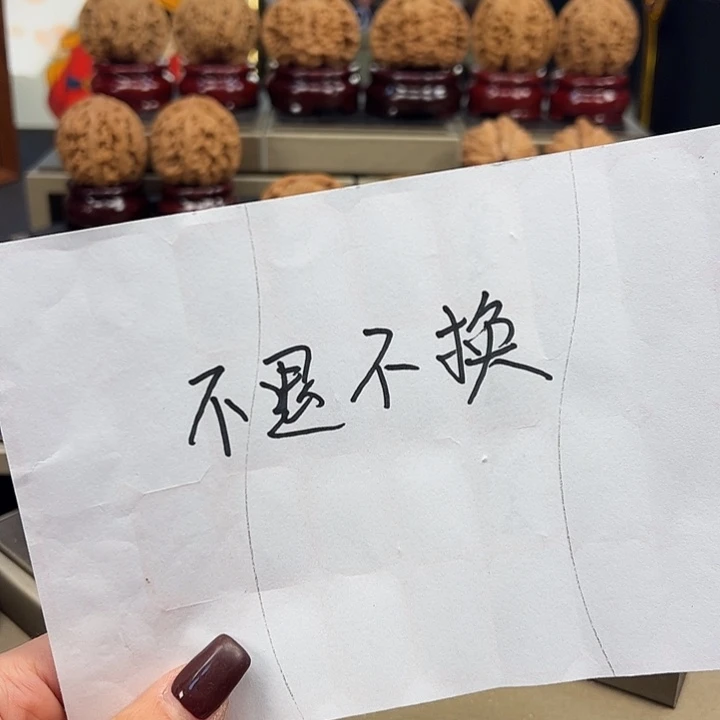 不退不换